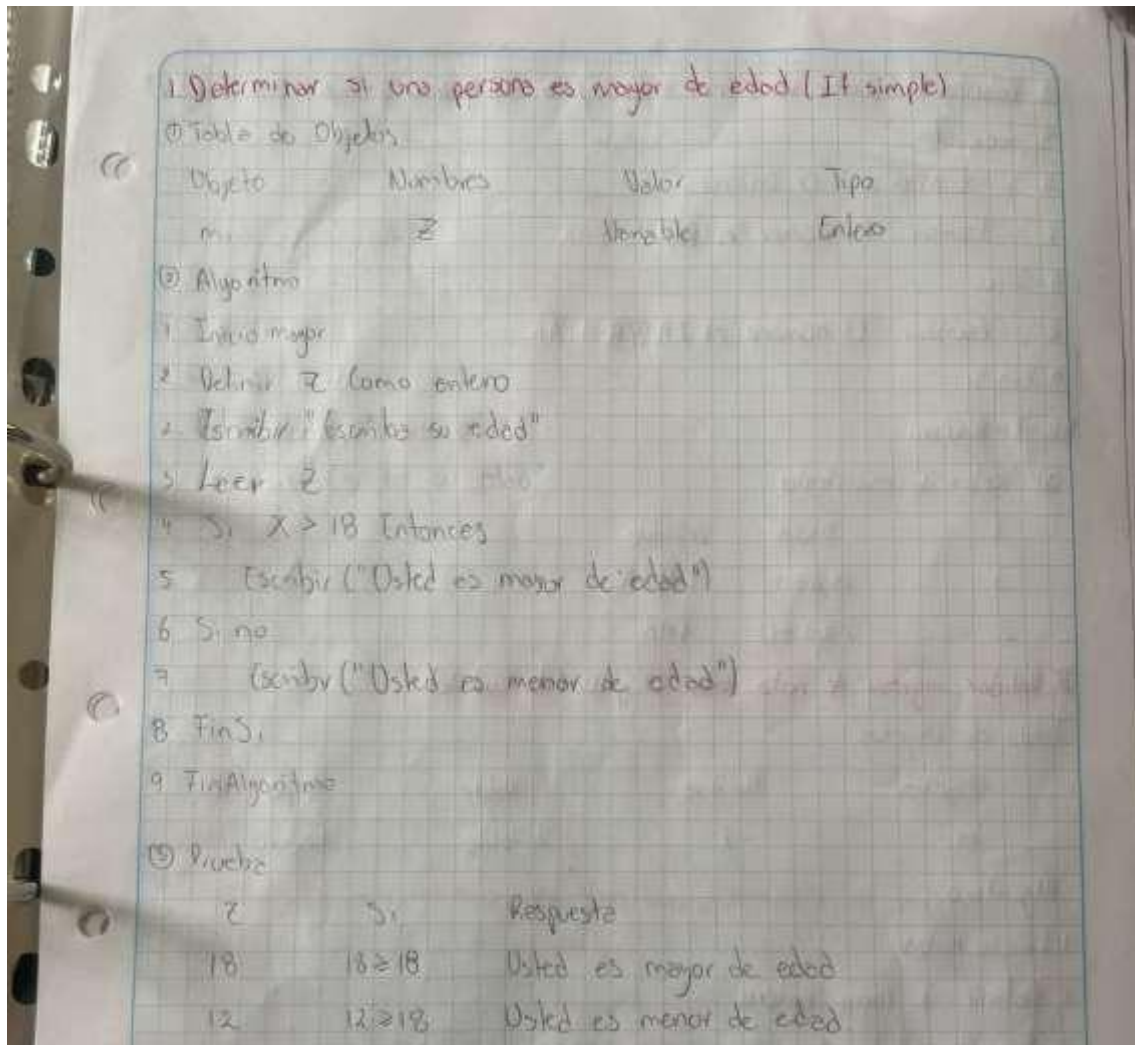 1. Determinar si una persona es mayor de edad (If simple)
① Tabla de Objetos
Objeto Nombres Valor Tipo
m. Z Variable Entero
② Algoritmo
1 Inicio mayor
2 Definir Z Como entero
2 Escribir "Escriba su edad"
3 Leer Z
4 Si X > 18 Entonces
5 Escribir ("Usted es mayor de edad")
6 Si no
7 Escribir ("Usted es menor de edad")
8 FinSi
9 FinAlgoritmo
③ Prueba
Z Si Respuesta
18 18≥18 Usted es mayor de edad
12 12≥18 Usted es menor de edad